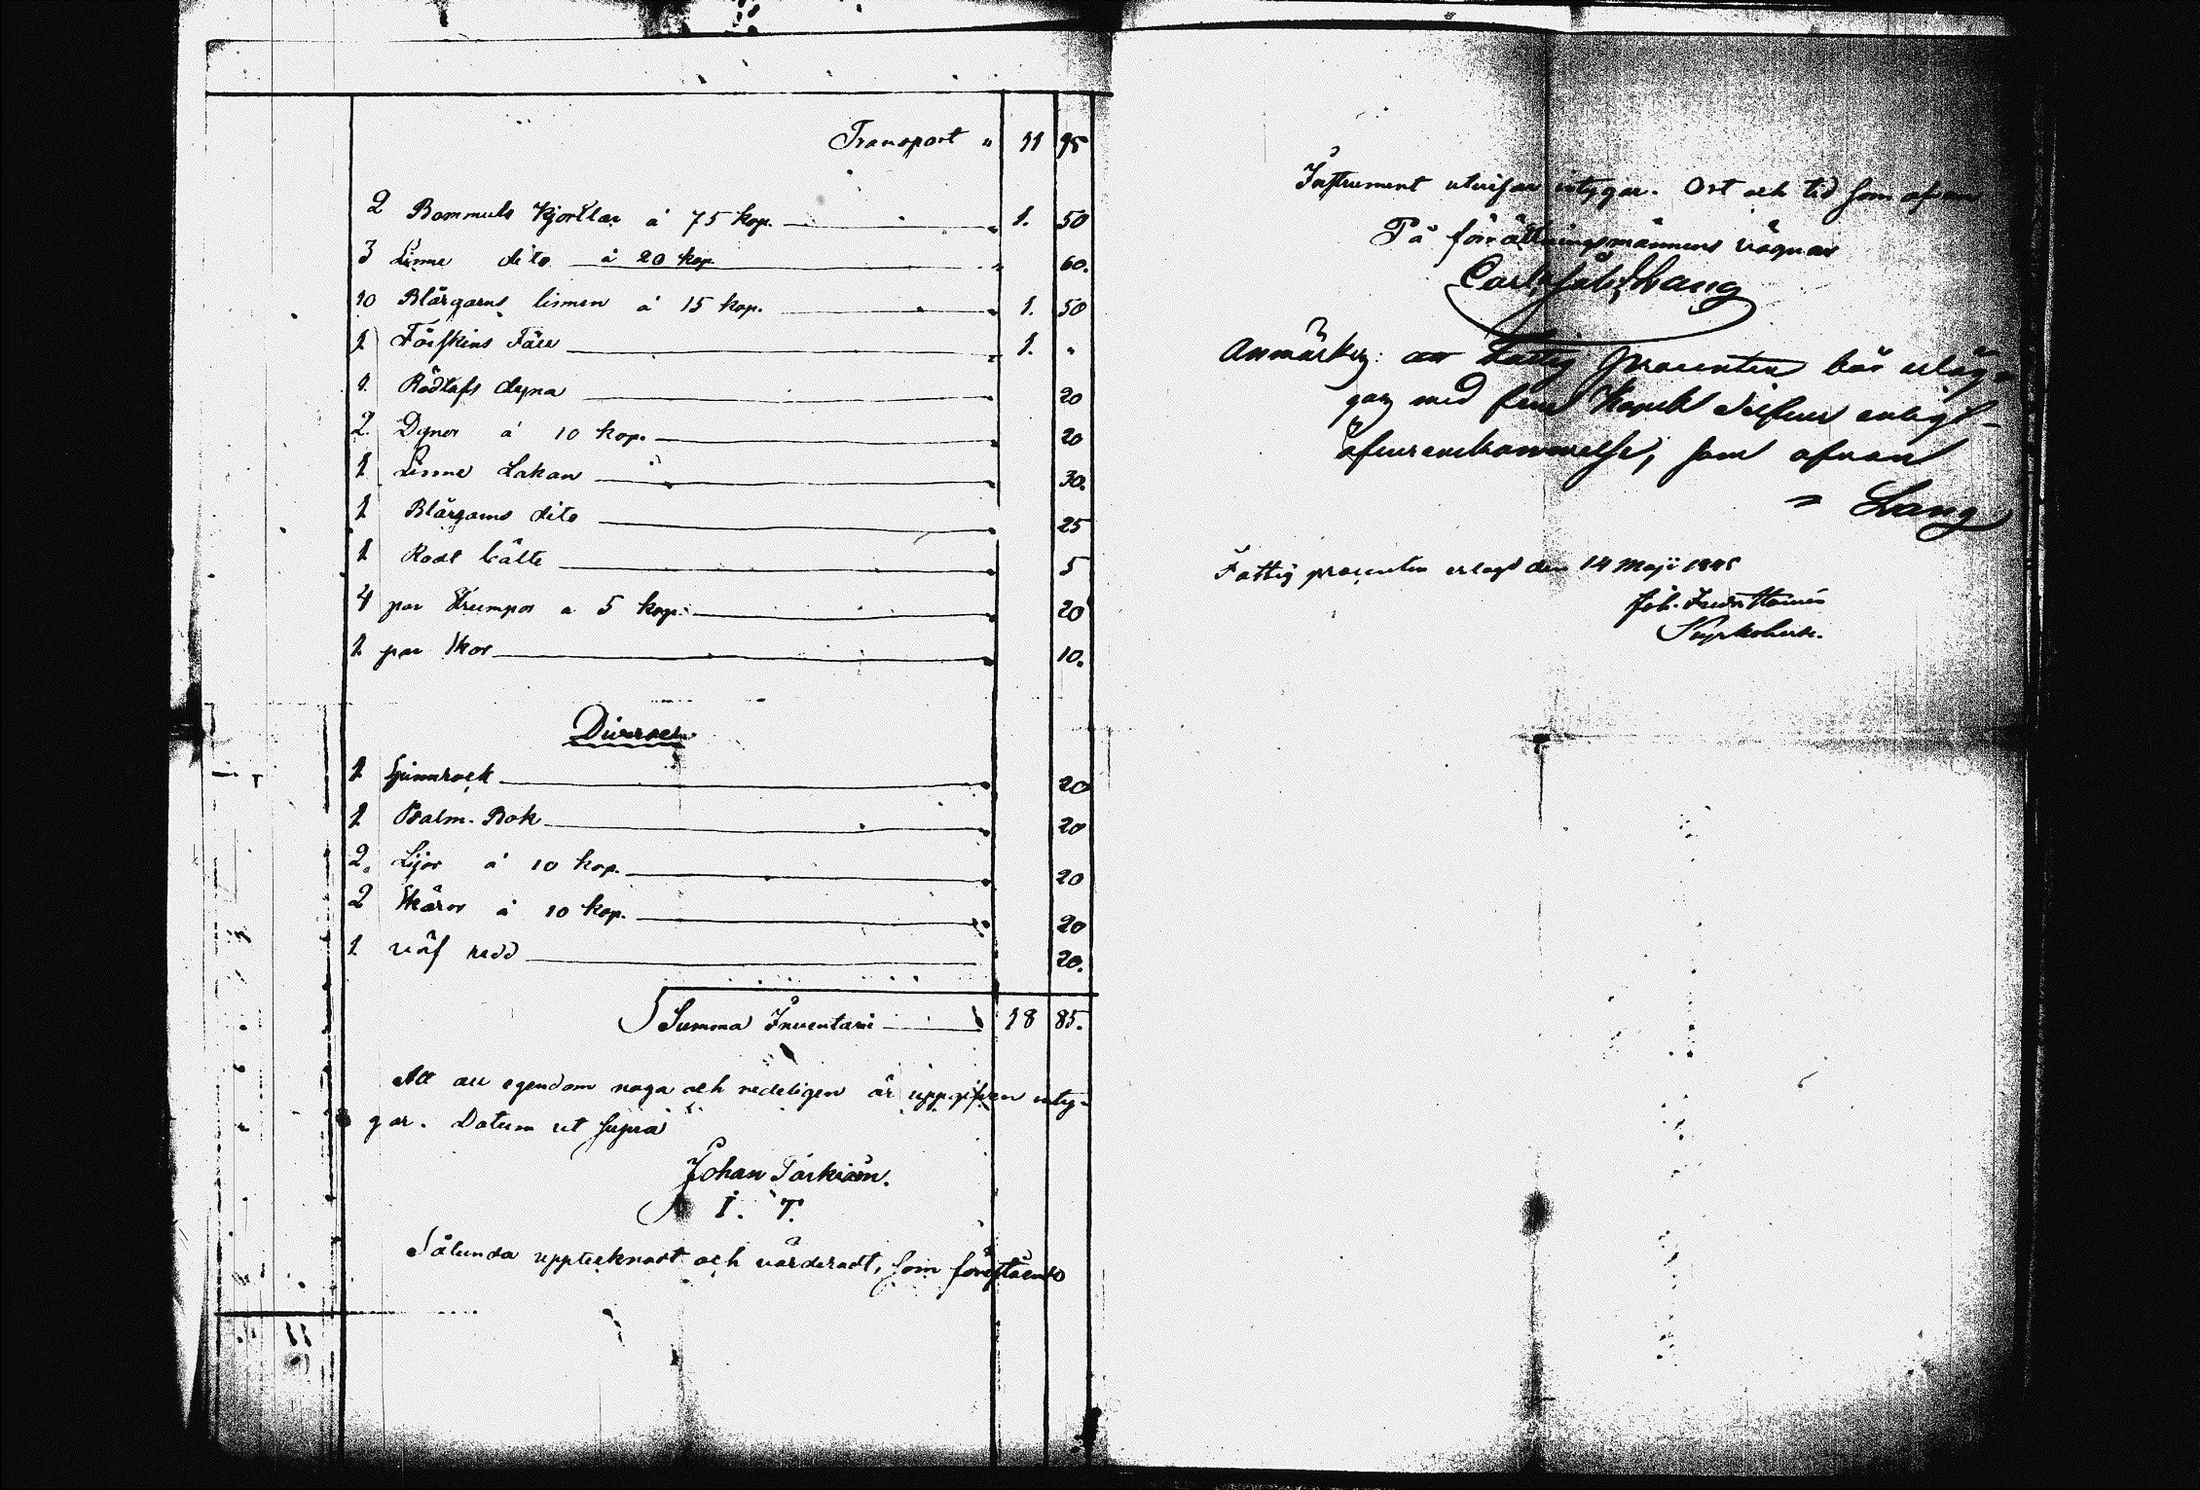 Transport " 11 95
2 Bommuls Kjortlar á 75 kop. 1. 50
3 Linne dito á 20 kop. 60.
10 Blårgarns linnen á 15 kop. 1. 50
1 Fårskins Fäll 1. "
1. dyna 20
2. Dynor á 10 kop. 20
1 Linne Lakan 30.
1 Blårgarns dito 25
1 Rodt bälte 5
4 par Strumpor a 5 kop. 20
1 par Skor 10.
Diverser
1 Spinnrock 20
1 Psalm-Bok 20
2. Lijor á 10 kop. 20
2 Skäror á 10 kop. 20
1 väf redd 20.
Summa Inventarii 18 85.
Att all egendom noga och redeligen är uppgifven inty-
gar. Datum ut supra
Johan
I. T.
Sålunda upptecknadt och värderadt, som föreståend
Instrument utvisar intygar. Ort och tid som ofvan
På förrättningsmännens vägnar
Carl Lang
Anmärkn: Fattig procenten bör erläg-
gas med fem Kopek Silfver enligt
öfverenskommelse, som ofvan
" Lang
Fattig procenten erlagd den 14 Maji
Joh.